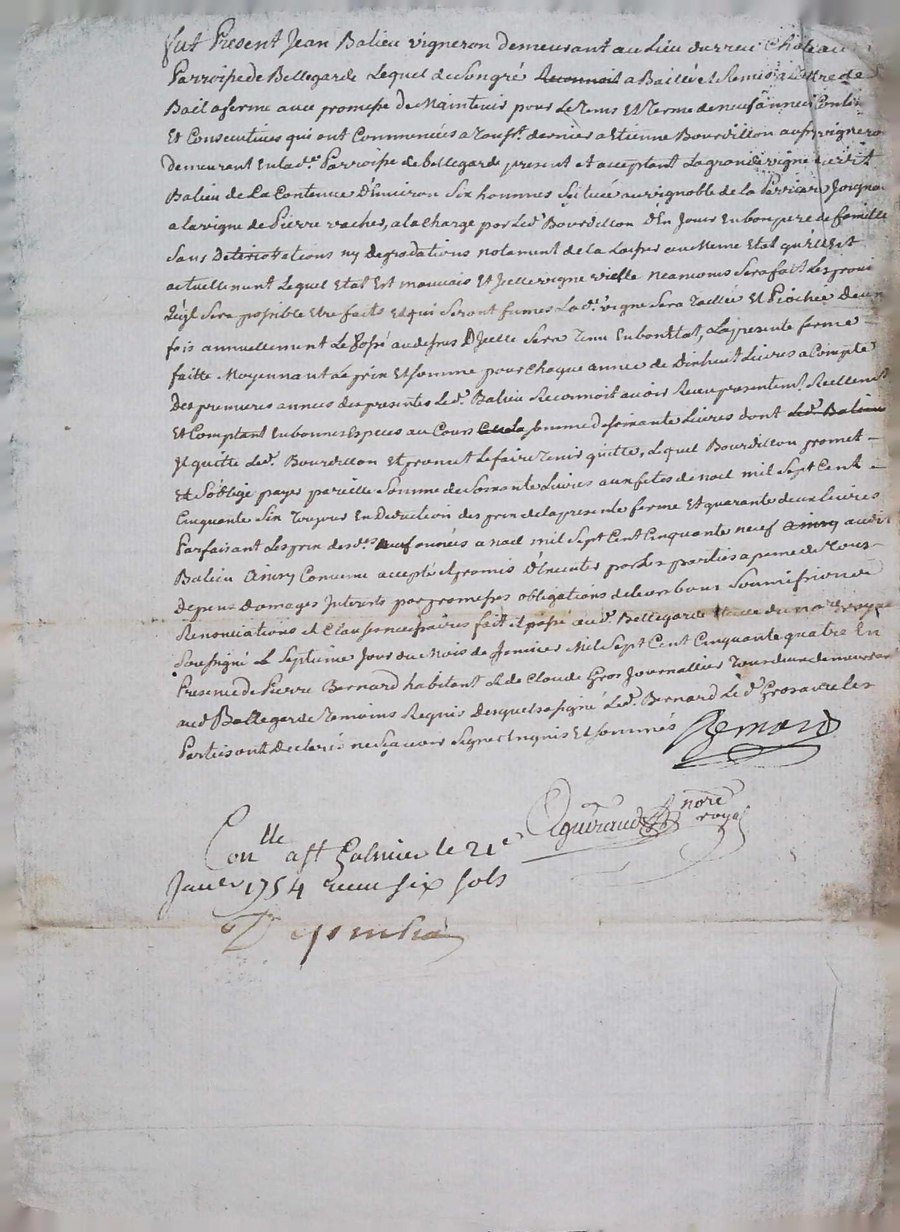 fut Present Jean Balieu vigneron demeurant au Lieu du vieu Chateau
Parroisse de Bellegarde Lequel de Son gré Reconnoit a Baillé et Remis a Titre de
Bail a ferme avec promesse de Maintenir pour Le Tems Et Terme de neuf années
Et Consecutives qui ont Commencées a Toussts. dernier a Etienne Bourdillon aussy vigneron
demeurant En lad.e Parroisse de bellegarde present et acceptant La grande vigne dud.t
Balieu de La Contenue D'Environ Six hommes Situee au vignoble de la Joignant
a la vigne de Pierre vacher, a la Charge par Led.t Bourdillon d'En Jouir En bon pere de famille
Sans Deteriorations ny degradations notament de la Laisser au Meme Etat qu'il Est
actuellement Lequel Etat Est mauvais Et vigne vielle neamoins Sera fait Les
Sera possible Etre faits et qui Seront fumes La d.e vigne Sera Taillée Et Piochée deux
fois annuellement Le fossé au dessus D'Jcelle Sera Tenu En bon Etat, La presente ferme
faitte Moyennant Le prix Et Somme pour Chaque année de Dixhuit Livres a Compte
Des premieres années des presentes Led.t Balieu Reconnoit avoir Receu presentemt. Reellemt.
Et Comptant En bonnes Especes au Cours la Somme de soixante Livres dont Led.t Balieu
Jl quitte Led.t Bourdillon Et promet Le faire Tenir quitte, Lequel Bourdillon promet
Et S'oblige payer pareille Somme de Soixante Livres aux fetes de noel mil Sept Cent
Cinquante Six Toujour En Deduction des prix de la presente ferme Et quarante deux Livres
Parfaisant Les prix desd.es neuf années a noel mil Sept Cent Cinquante neuf Ainsy
Balieu Ainsy Convenu accepté et promis D'Executer par Les parties a peine de Tous
Depens Domages Interets par promesses obligations de leurs biens Soumissions
Renonciations et Clauses necessaires fait et passé aud.t Bellegarde Etude du no.re royal
Soussigné Le Septieme Jour du Mois de Janvier Mil Sept Cent Cinquante quatre En
Presence de Pierre Bernard habitant et de Claude Gros Journallier Tous deux demeurant
aud.t Bellegarde Temoins Requis Desquels a signé Led.t Bernard Led.t Gros avec les
Parties ont Declaré ne Sçavoir Signer Enquis Et Sommés
Bernard
guiraud nore
royal
Con.lle a St Galmier le 21e
Janer 1754 receu six sols